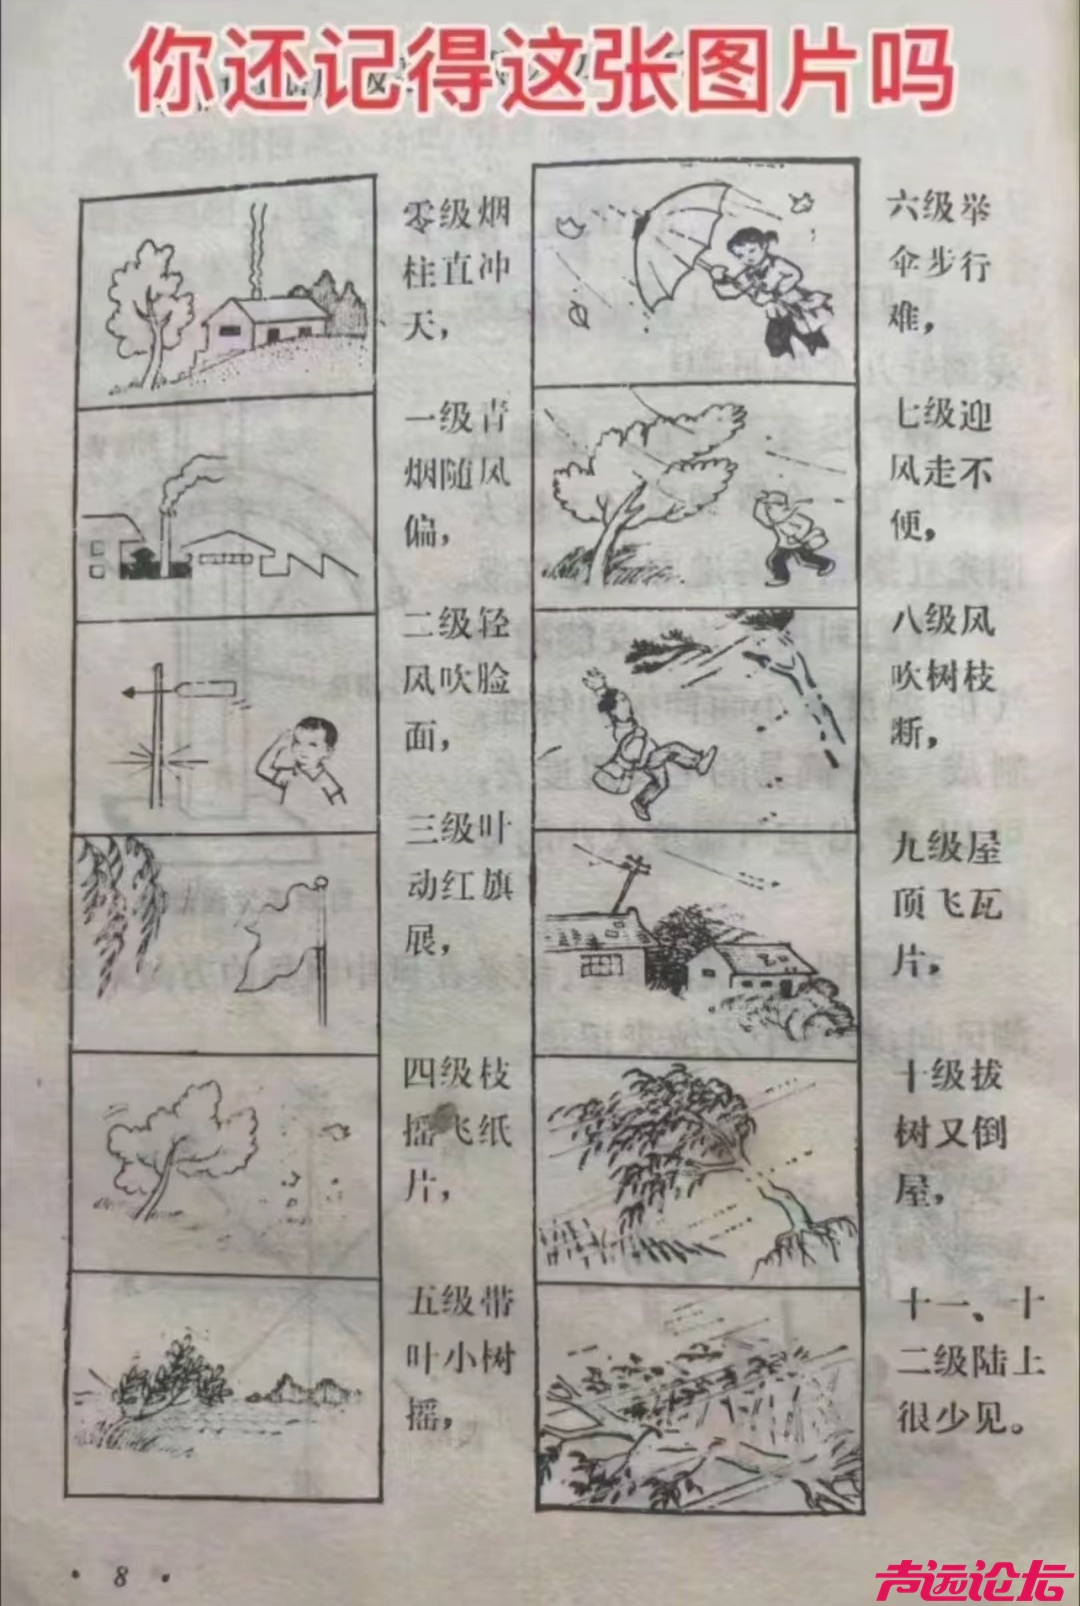 你还记得这张图片吗
零级烟
柱直冲
天，
一级青
烟随风
偏，
二级轻
风吹脸
面，
三级叶
动红旗
展，
四级枝
摇飞纸
片，
五级带
叶小树
摇，
六级举
伞步行
难，
七级迎
风走不
便，
八级风
吹树枝
断，
九级屋
顶飞瓦
片，
十级拔
树又倒
屋，
十一、十
二级陆上
很少见。
· 8 ·
声远论坛